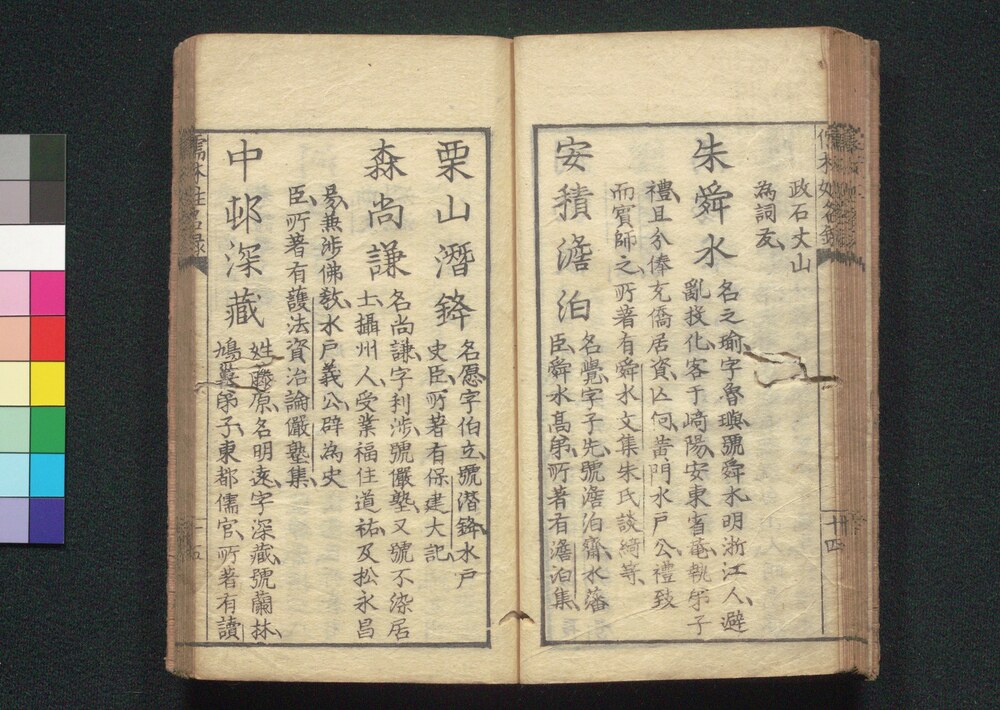 政石丈山
為詞友
朱舜水
名之瑜字魯璵號舜水明浙江人避
亂投化客于崎陽安東省菴執弟子
禮且分俸充僑居資
黄門水戸公禮致
而賓師之所著有舜水文集朱氏談綺等
安積澹泊
名覺字子先號澹泊齋水藩
臣舜水髙弟所著有澹泊集
十四
栗山潛鋒
名愿字伯立號潛鋒水戸
史臣所著有保建大記
森尚謙
名尚謙字利渉號儼塾又號不染居
士攝州人受業福住道祐及松永昌
易兼渉佛教水戸義公辟為史
臣所著有護法資治論儼塾集
中邨深藏
姓藤原名明遠字深藏號蘭林
鳩巣弟子東都儒官所著有讀
儒林姓名録